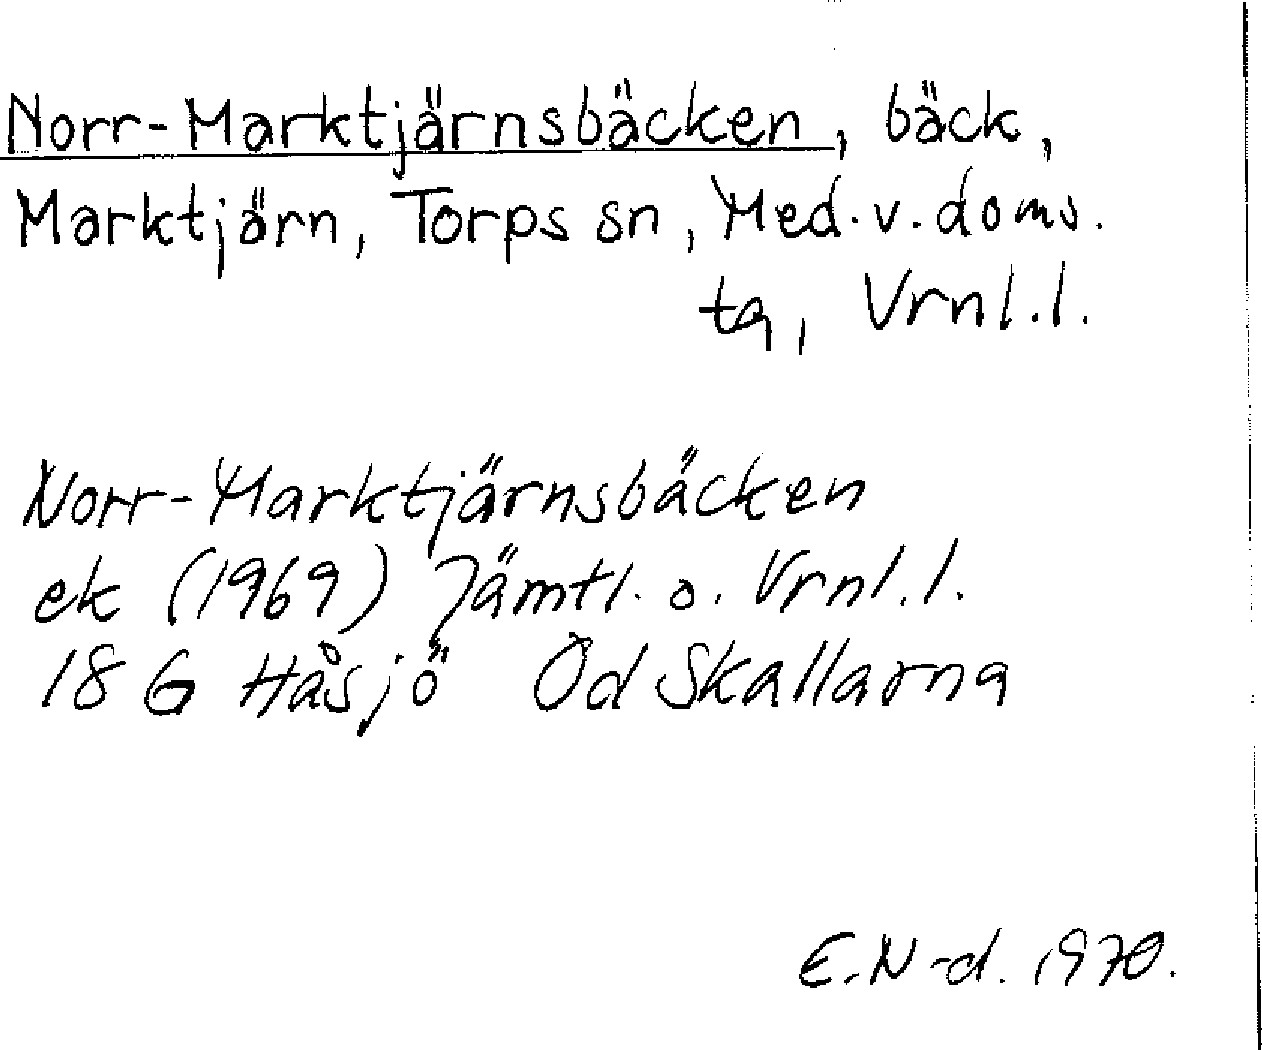 Norr-Marktjärnsbäcken, bäck,
Marktjärn, Torps sn, Med.v.doms.
tg, Vrnl.l.
Norr-Marktjärnsbäcken
ek (1969) Jämtl. o. Vrnl.l.
18 G Håsjö Öd Skallarna
E.N-d. 1970.